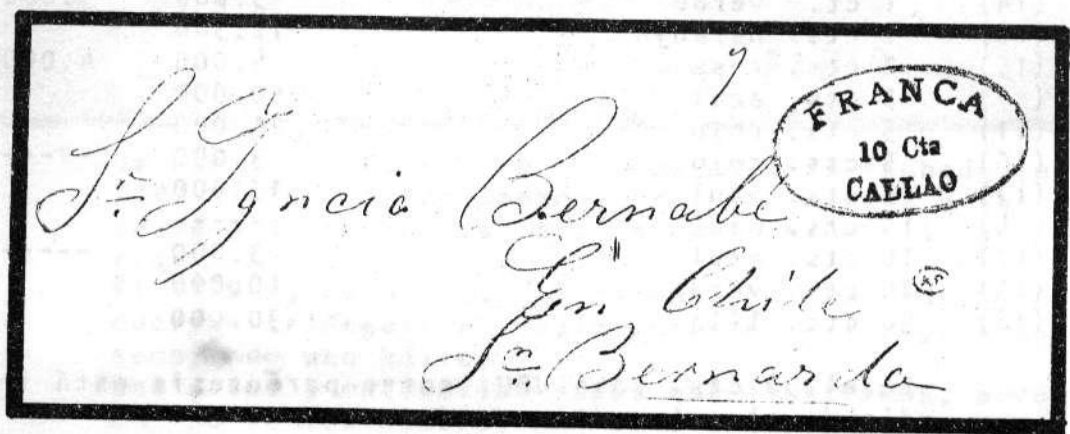 FRANCA
10 Cta
CALLAO
Sr. Ygncio Bernabé
En Chile
Sn Bernardo